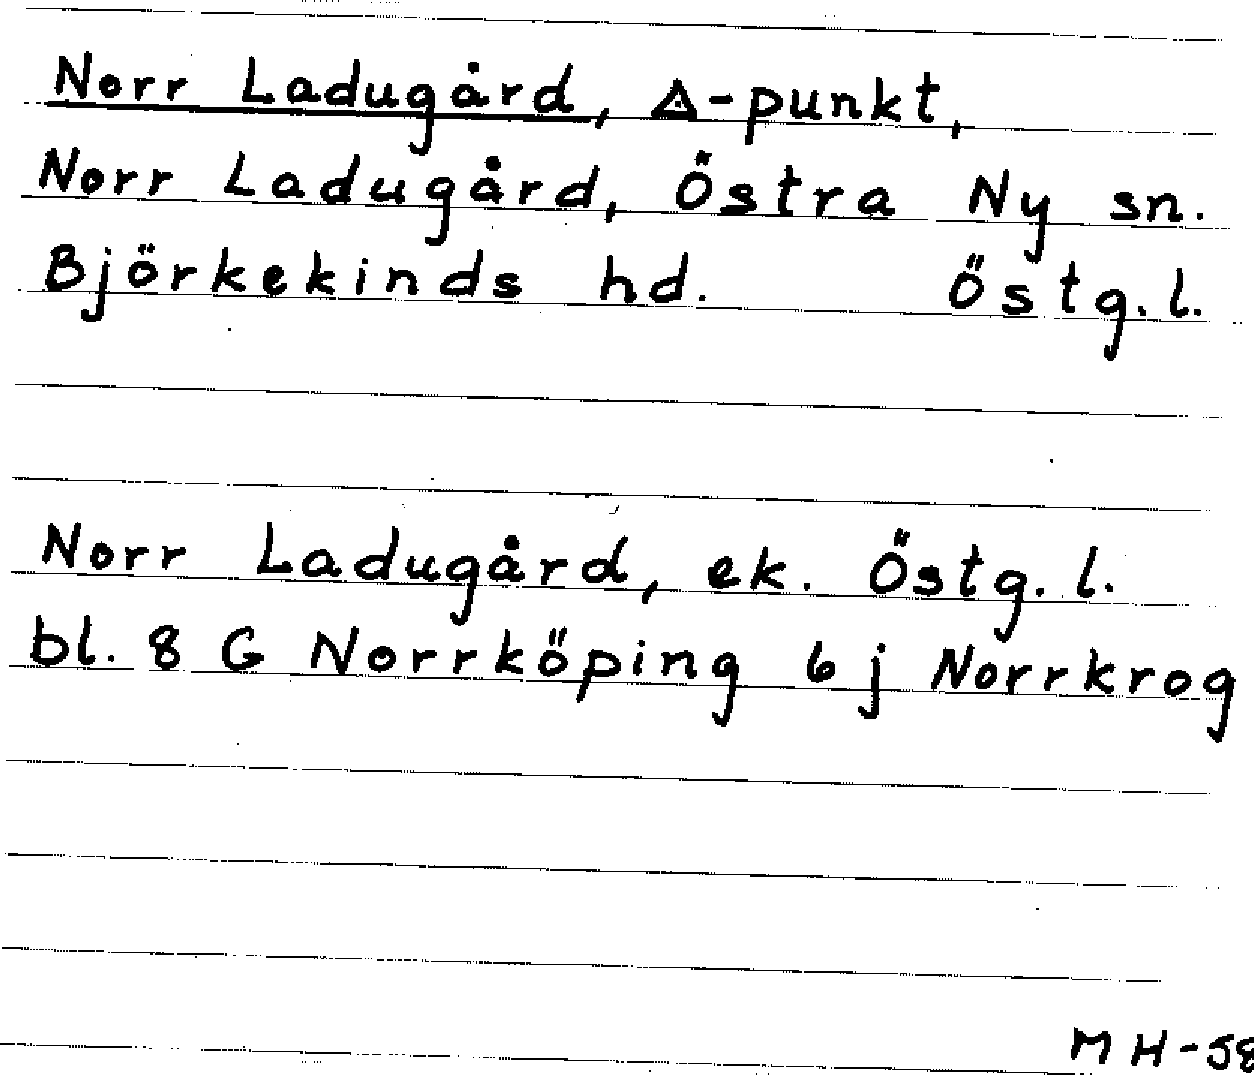 Norr Ladugård, △-punkt,
Norr Ladugård, Östra Ny sn.
Björkekinds hd. Östg. l.
Norr Ladugård, ek. Östg. l.
bl. 8 G Norrköping 6 j Norrkrog
MH-58